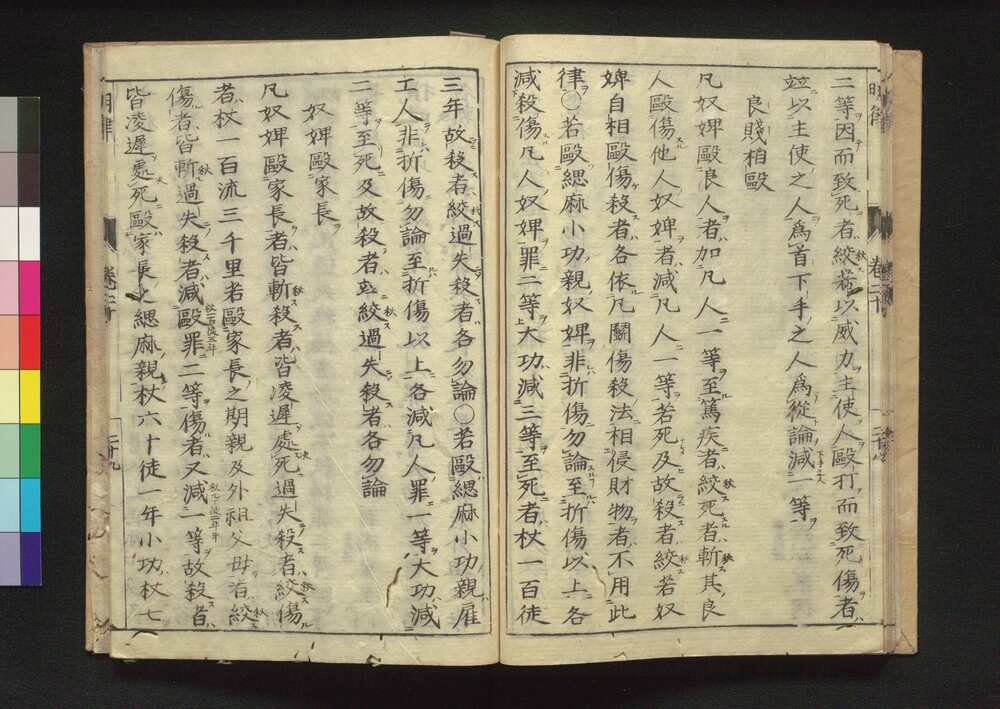 二等因而致死者絞若以威力主使人毆打而致死傷者
竝以主使之人爲首下手之人爲從論減一等
良賤相毆
凡奴婢毆良人者加凡人一等至篤疾者絞死者斬其良
人毆傷他人奴婢者減凡人一等若死及故殺者絞若奴
婢自相毆傷殺者各依凡鬪傷殺法相侵財物者不用此
律○若毆緦麻小功親奴婢非折傷勿論至折傷以上各
減殺傷凡人奴婢罪二等大功減三等至死者杖一百徒
三年故殺者絞過失殺者各勿論○若毆緦麻小功親雇
工人非折傷勿論至折傷以上各減凡人罪一等大功減
二等至死及故殺者竝絞過失殺者各勿論
奴婢毆家長
凡奴婢毆家長者皆斬殺者皆凌遲處死過失殺者絞傷
者杖一百流三千里若毆家長之期親及外祖父母者絞
傷者皆斬過失殺者減毆罪二等傷者又減一等故殺者
皆凌遲處死毆家長之緦麻親杖六十徒一年小功杖七
明律
卷二十
二十九
明律
卷二十